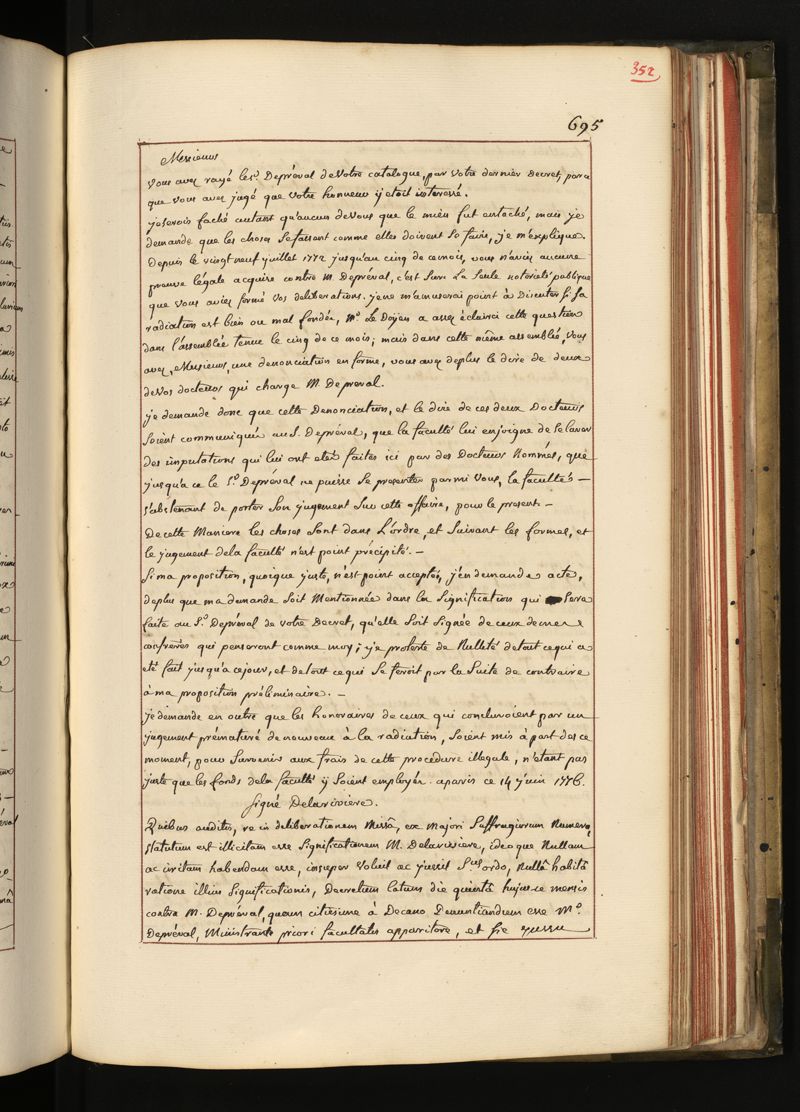 352
695
Messieurs
vous avez rayé le S.r Depréval de votre catalogue, par votre dernier Decret, parce
que vous avez jugé que votre honneur y étoit intéressé.
je serois faché autant qu'aucun de vous que le mien fut entaché, mais je
demande que les choses se fassent comme elles doivent se faire, je m'explique.
Depuis le vingt neuf juillet 1772 jusqu'au cinq de ce mois, vous n'aviez aucune
preuve légale acquise contre M. Depréval, c'est sur la seule notorieté publique
que vous aviez formé vos deliberations. je ne m'amuserai point à Discuter si sa
radiation est bien ou mal fondée, M.r Le Doyen a assez éclairci cette question
dans l'assemblée tenue le cinq de ce mois; mais dans cette même assemblée, vous
avez, Messieurs, une denonciation en forme, vous avez deplus le dire de deux
de vos docteurs qui charge M. Depreval.
je demande donc que cette Denonciation, et le dire de ces deux Docteurs
soient communiqués au S. Depréval, que la faculté lui enjoigne de se laver
des imputations qui lui ont eté faites ici par des Docteurs Nommés, que
jusqu'a ce le S.r Depréval ne puisse se presenter parmi vous, la faculté —
s'abstenant de porter son jugement sur cette affaire, pour le present. —
De cette Maniere les choses sont dans L'ordre, et suivant les formes, et
le jugement dela faculté n'est point précipité. —
Si ma proposition, quoique juste, n'est point acceptée, j'en demande acte,
deplus que ma demande soit Mentionnée dans la signification qui sera
faite au S.r Depréval de votre Decret, qu'elle soit signée de ceux de mes
confrères qui penseront comme moy; je proteste de Nullité de tout ce qui a
eté fait jusqu'a ce jour, et de tout ce qui se feroit par la suite de contraire
à ma proposition préliminaire. —
je demande en outre que les honoraires de ceux qui concluroient par un
jugement prématuré de nouveau à la radiation, soient mis à part des ce
moment, pour survenir aux frais de cette procédure illegale, n'etant pas
juste que les fonds dela faculté y soient employés. a paris ce 14 juin 1776.
Signé Delariviere.
Quibus auditis, re in deliberationem missâ, ex Majori suffragiorum Numero,
statutum est illicitam esse significationem M. Delariviere, ideoque Nullam
ac irritam habendam esse, insuper voluit ac jussit S.us ordo, Nullâ habitâ
ratione illius significationis, Decretum latum die quintâ hujusce mensis
contra M. Depréval, quam citissime à Decano Denuntiandum esse M.o
Depréval, Ministrante priori facultatis apparitore, et sic jussu